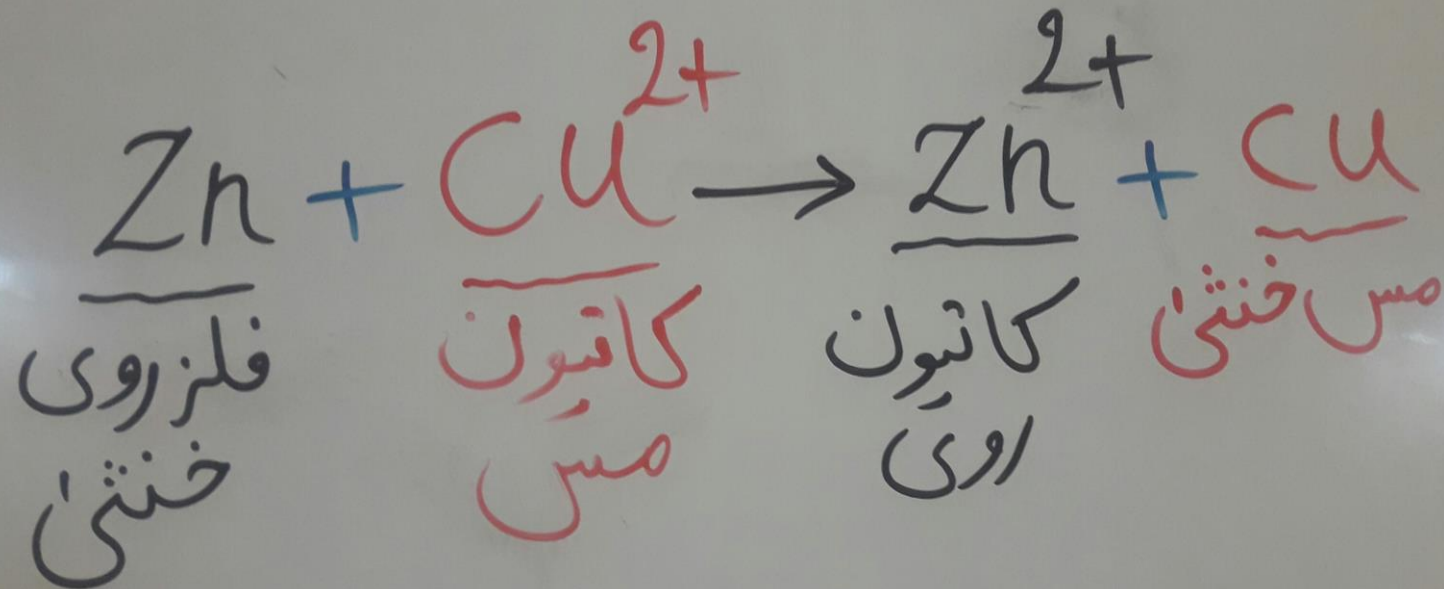 Zn + Cu²⁺ → Zn²⁺ + Cu
فلز روی
خنثیٰ
کاتیون
مس
کاتیون
روی
مس خنثیٰ